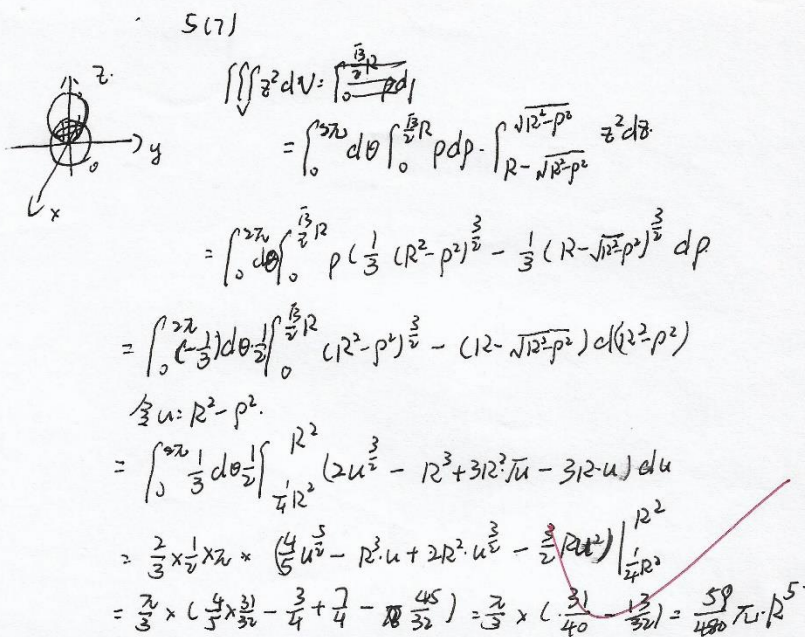 5(7)
z.
y
x
o
∭_V z²dV = ∫_0^{√3/2 R} ρd
= ∫_0^{2π} dθ ∫_0^{√3/2 R} ρdρ · ∫_{R-√(R²-ρ²)}^{√(R²-ρ²)} z²dz.
= ∫_0^{2π} dθ ∫_0^{√3/2 R} ρ (1/3 (R²-ρ²)^{3/2} - 1/3 (R-√(R²-ρ²))^{3/2} dρ.
= ∫_0^{2π} (-1/3)dθ·1/2 ∫_0^{√3/2 R} (R²-ρ²)^{3/2} - (R-√(R²-ρ²)) d(R²-ρ²)
令u=R²-ρ².
= ∫_0^{2π} 1/3 dθ 1/2 ∫_{1/4 R²}^{R²} (2u^{3/2} - R³+3R²√u - 3R·u) du
= 2/3 × 1/2 × π × (4/5 u^{5/2} - R³·u + 2R²·u^{3/2} - 3/2 Ru²) |_{1/4 R²}^{R²}
= π/3 × (4/5 × 31/32 - 3/4 + 7/4 - 45/32) = π/3 × (31/40 - 13/32) = 59/480 π·R⁵